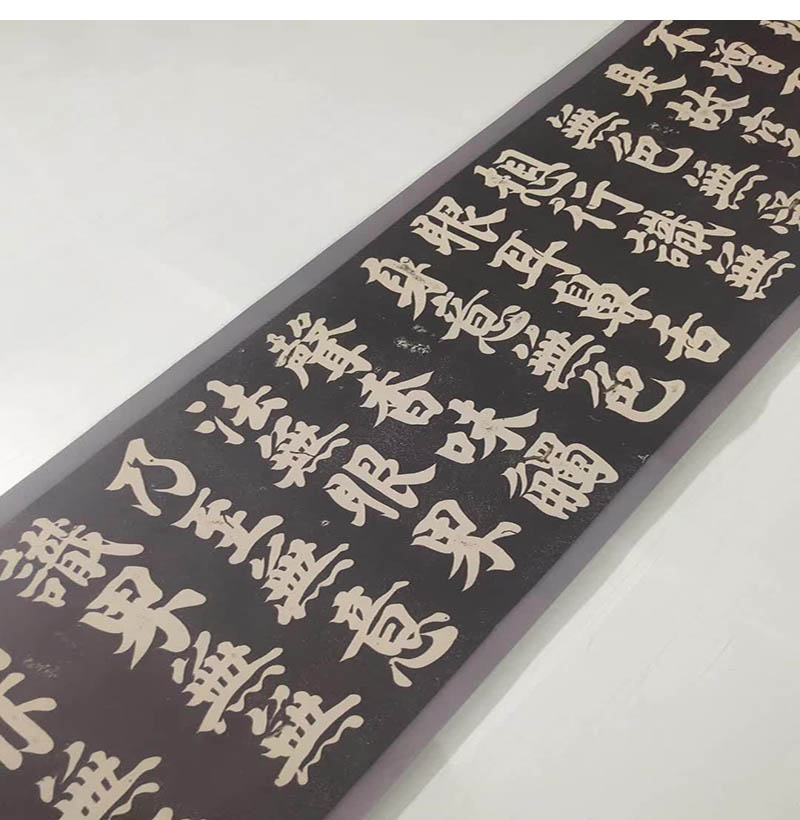 不增不
是故空
無色無受
想行識無
眼耳鼻舌
身意無色
聲香味觸
法無眼界
乃至無意
識界無無
無